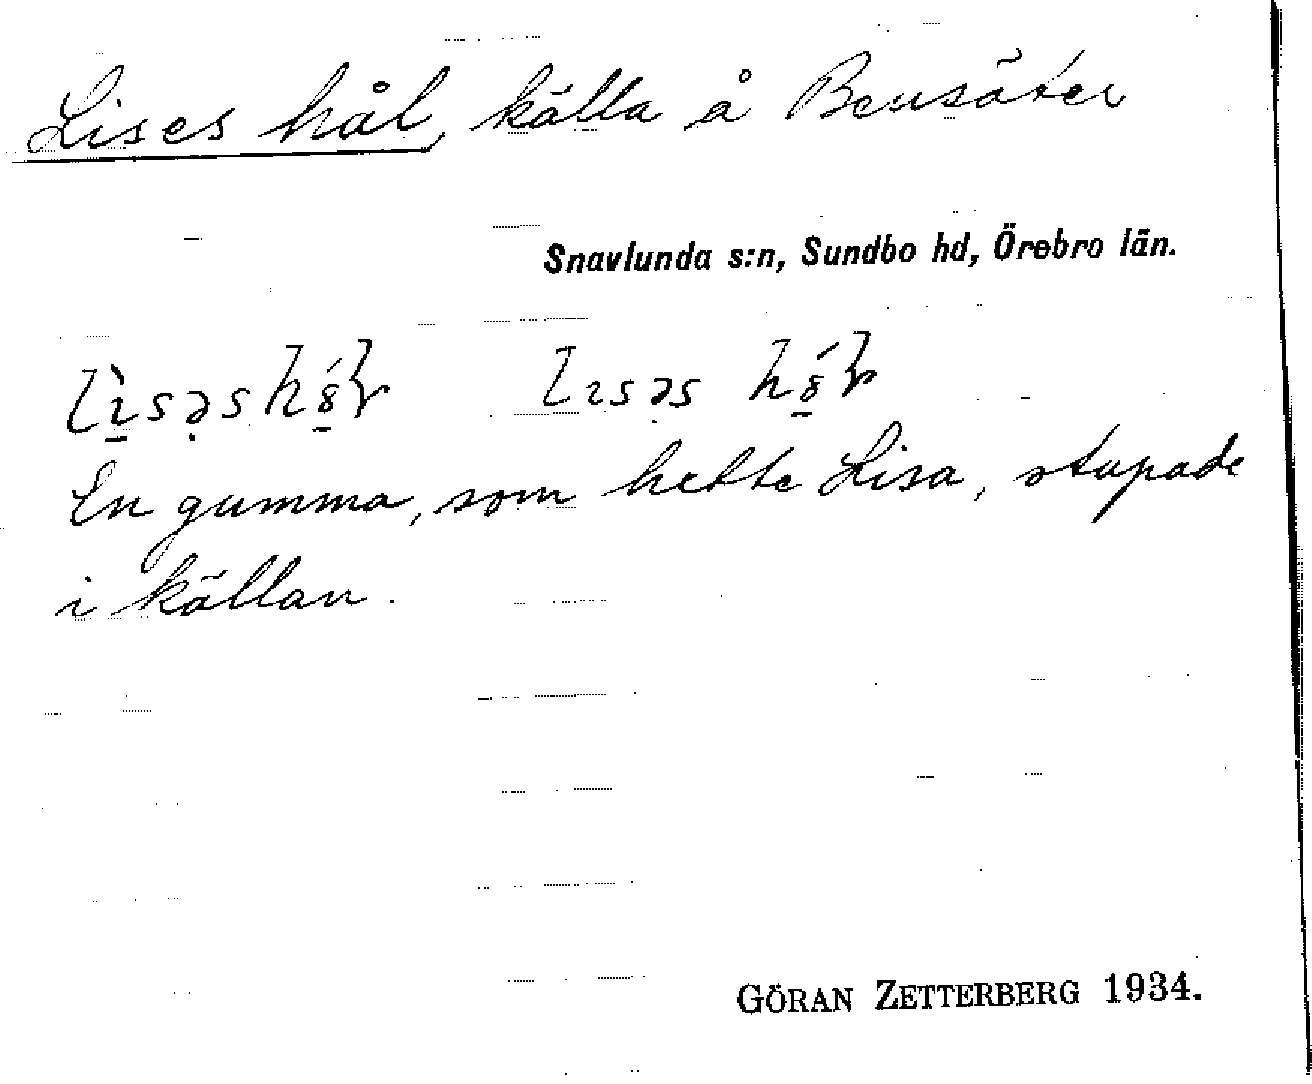 Lises hål, källa å Bensäter
Snavlunda s:n, Sundbo hd, Örebro län.
En gumma, som hette Lisa, stupade
i källan.
GÖRAN ZETTERBERG 1934.